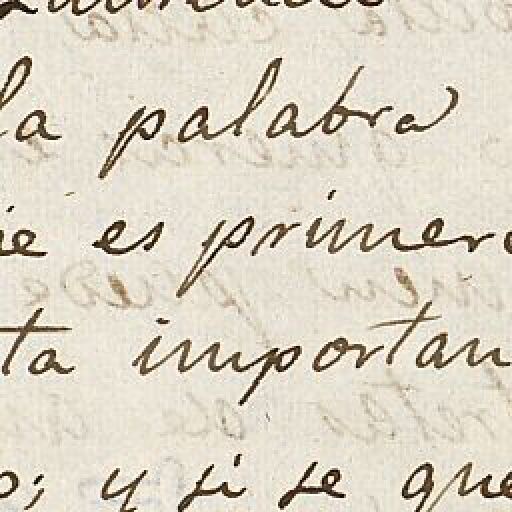 la palabra
es primer
ta importan
o; y si se que